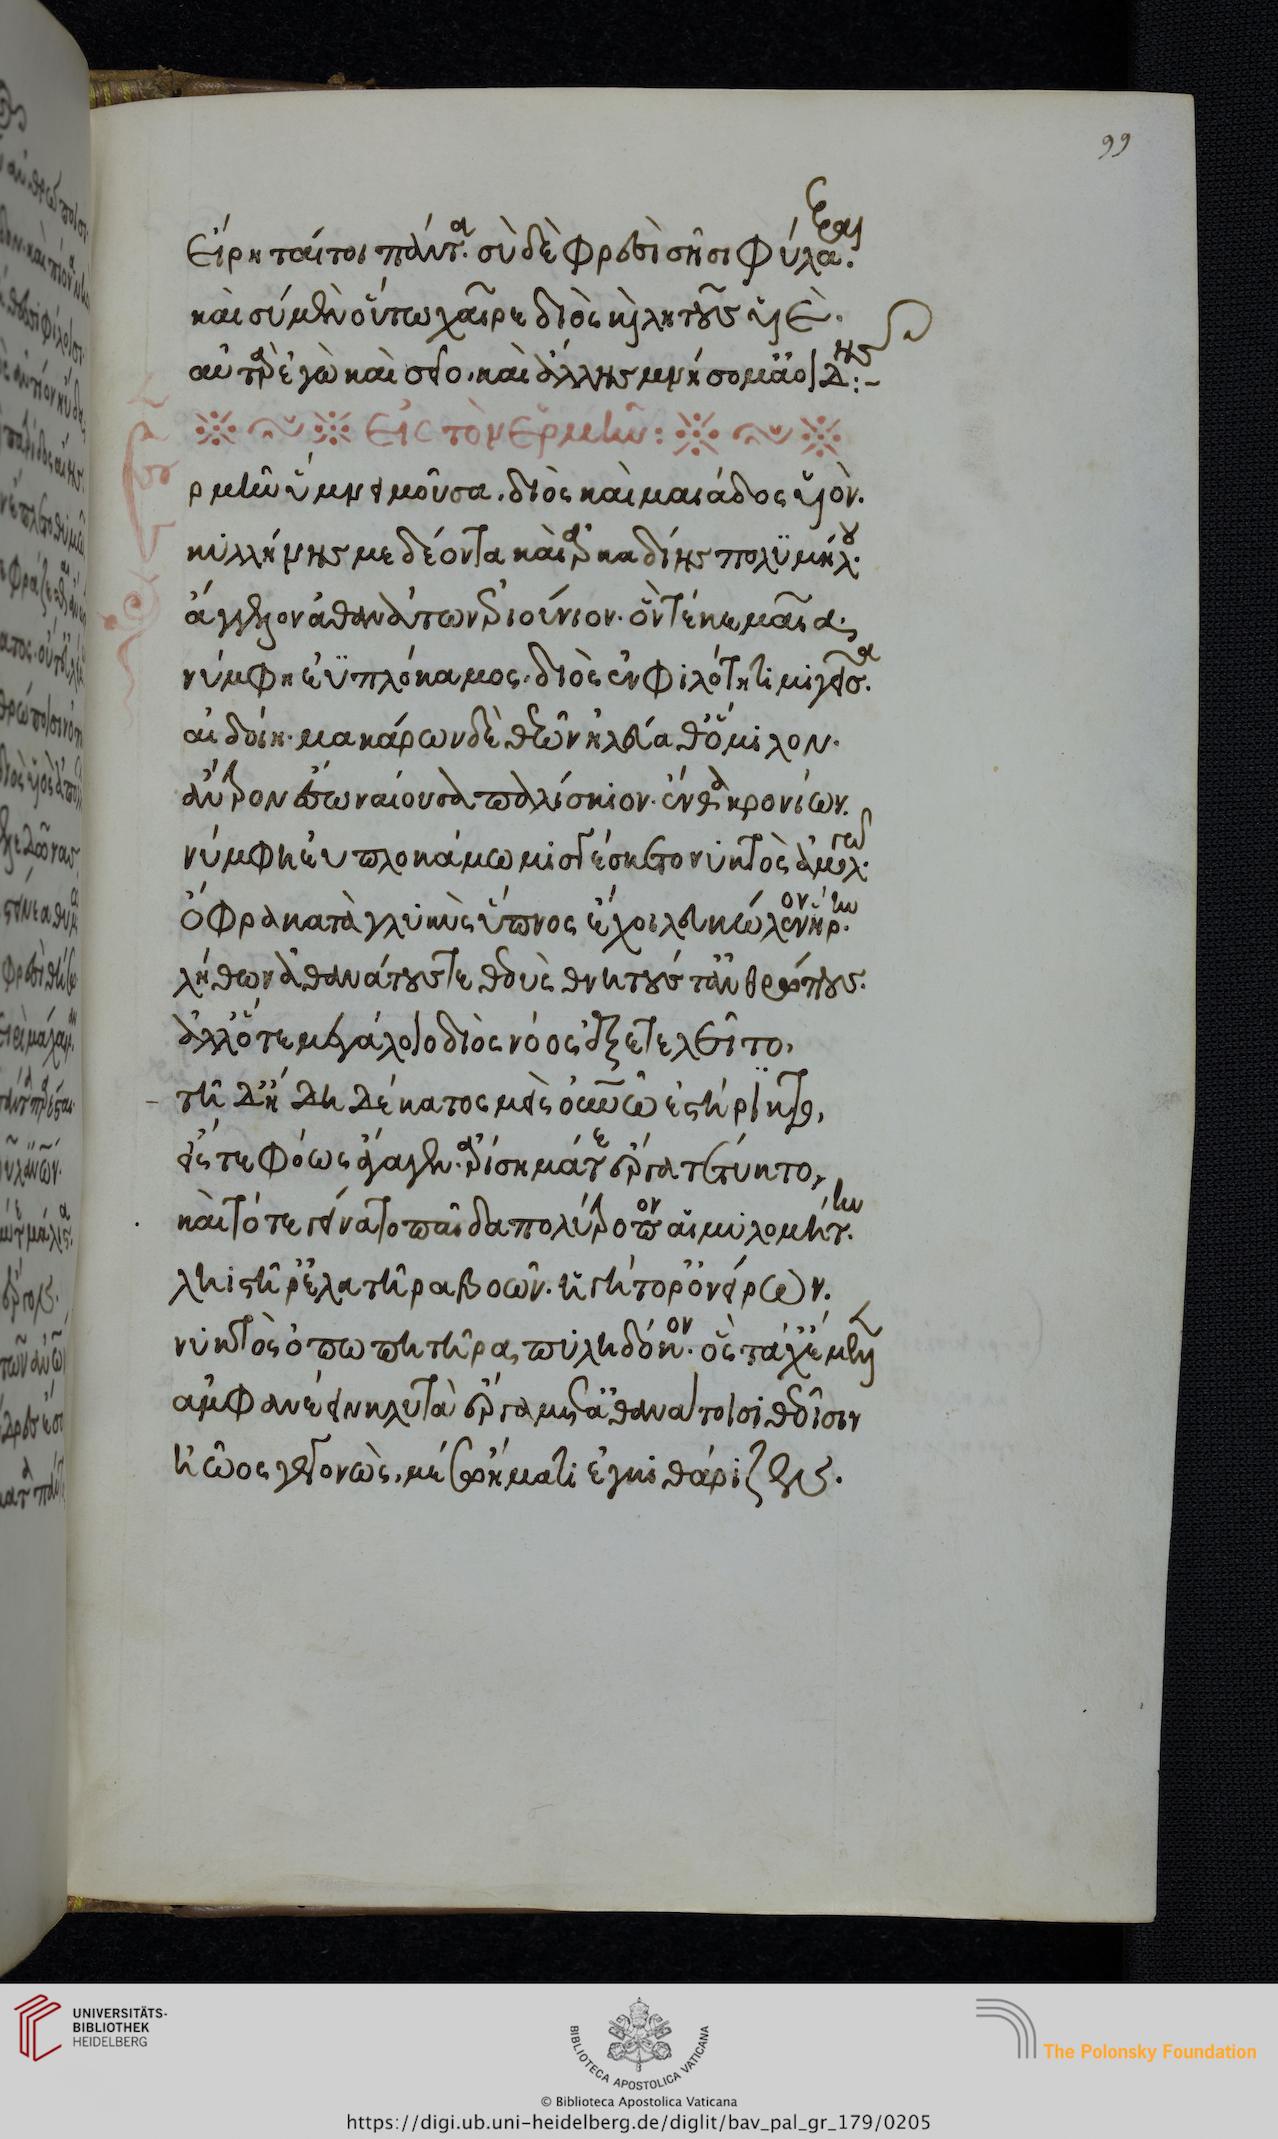 99
εἴρηταί τοι πάντα. σὺ δὲ φρεσὶ σῇσι φύλαξαι.
καὶ σὺ μὲν οὕτω χαῖρε διὸς καὶ λητοῦς υἱέ.
αὐτὰρ ἐγὼ καὶ σεῖο. καὶ ἄλλης μνήσομ' ἀοιδῆς:-
εἰς τὸν ἑρμῆν:
ρμῆν ὕμνει μοῦσα. διὸς καὶ μαιάδος υἱόν.
κυλλήνης μεδέοντα καὶ ἀρκαδίης πολϋμήλου.
ἄγγελον ἀθανάτων ἐριούνιον. ὃν τέκε μαῖα.
νύμφη ἐϋπλόκαμος. διὸς ἐν φιλότητι μιγεῖσα.
αἰδοίη. μακάρων δὲ θεῶν ἠλεύαθ' ὅμιλον.
ἄντρον ἔσω ναίουσα παλίσκιον. ἔνθα κρονίων.
νύμφη ἐυπλοκάμω μισγέσκετο νυκτὸς ἀμολγῶ.
ὄφρα κατὰ γλυκὺς ὕπνος ἔχοι λευκώλενον ἥρην.
λήθων ἀθανάτους τε θεοὺς θνητούς τ' ἀνθρώπους.
ἀλλ' ὅτε μεγάλοιο διὸς νόος ἐξετελεῖτο,
τῇ δ' ἤδη δέκατος μεὶς οὐρανῷ ἐστήρικτο,
εἴς τε φόως ἄγαγεν. ἀρίσημά τε ἔργα τέτυκτο,
καὶ τότε γείνατο παῖδα πολύτροπον αἱμυλομήτην.
ληιστῆρ' ἐλατῆρα βοῶν. ἡγήτορ' ὀνείρων.
νυκτὸς ὀπωπητῆρα, πυληδόκον. ὃς τάχ' ἔμελλεν
ἀμφανέειν κλυτὰ ἔργα μετ' ἀθανάτοισι θεοῖσιν
ἠῷος γεγονὼς, μέσῳ ἤματι ἐγκιθάριζεν.
UNIVERSITÄTS-
BIBLIOTHEK
HEIDELBERG
BIBLIOTECA APOSTOLICA VATICANA
The Polonsky Foundation
© Biblioteca Apostolica Vaticana
https://digi.ub.uni-heidelberg.de/diglit/bav_pal_gr_179/0205